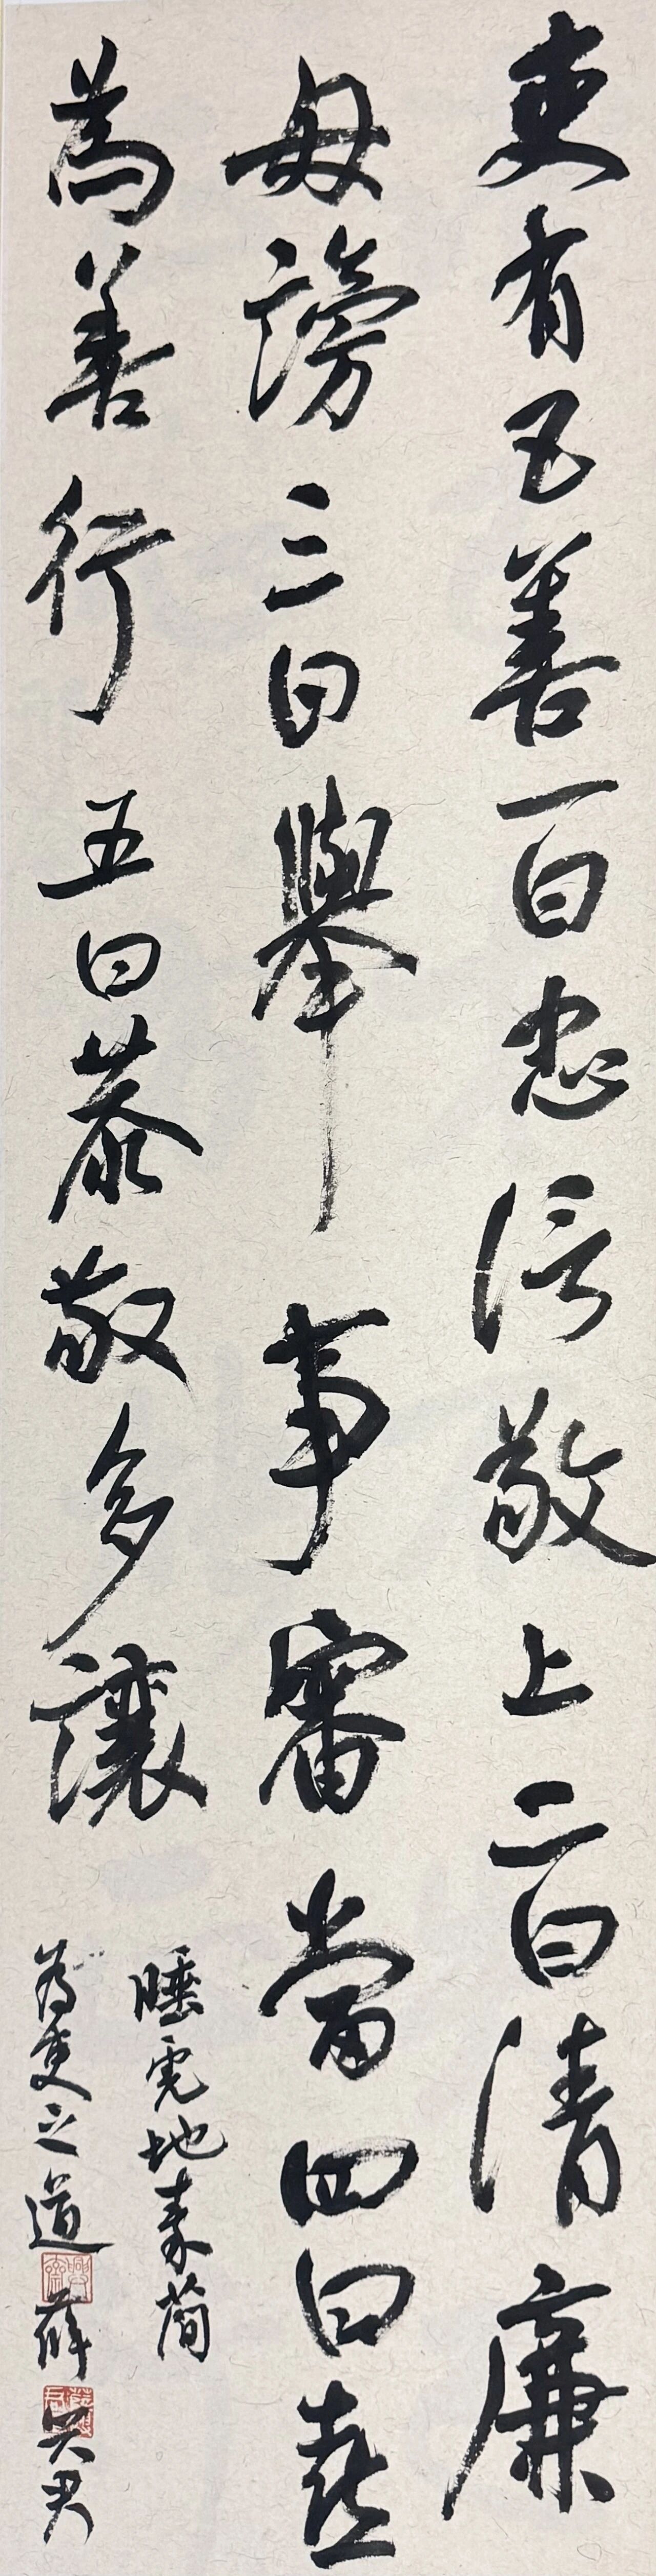 吏有五善一曰忠信敬上二曰清廉
毋謗三曰舉事審當四曰喜
為善行五曰恭敬多讓
睡虎地秦簡
為吏之道 薛